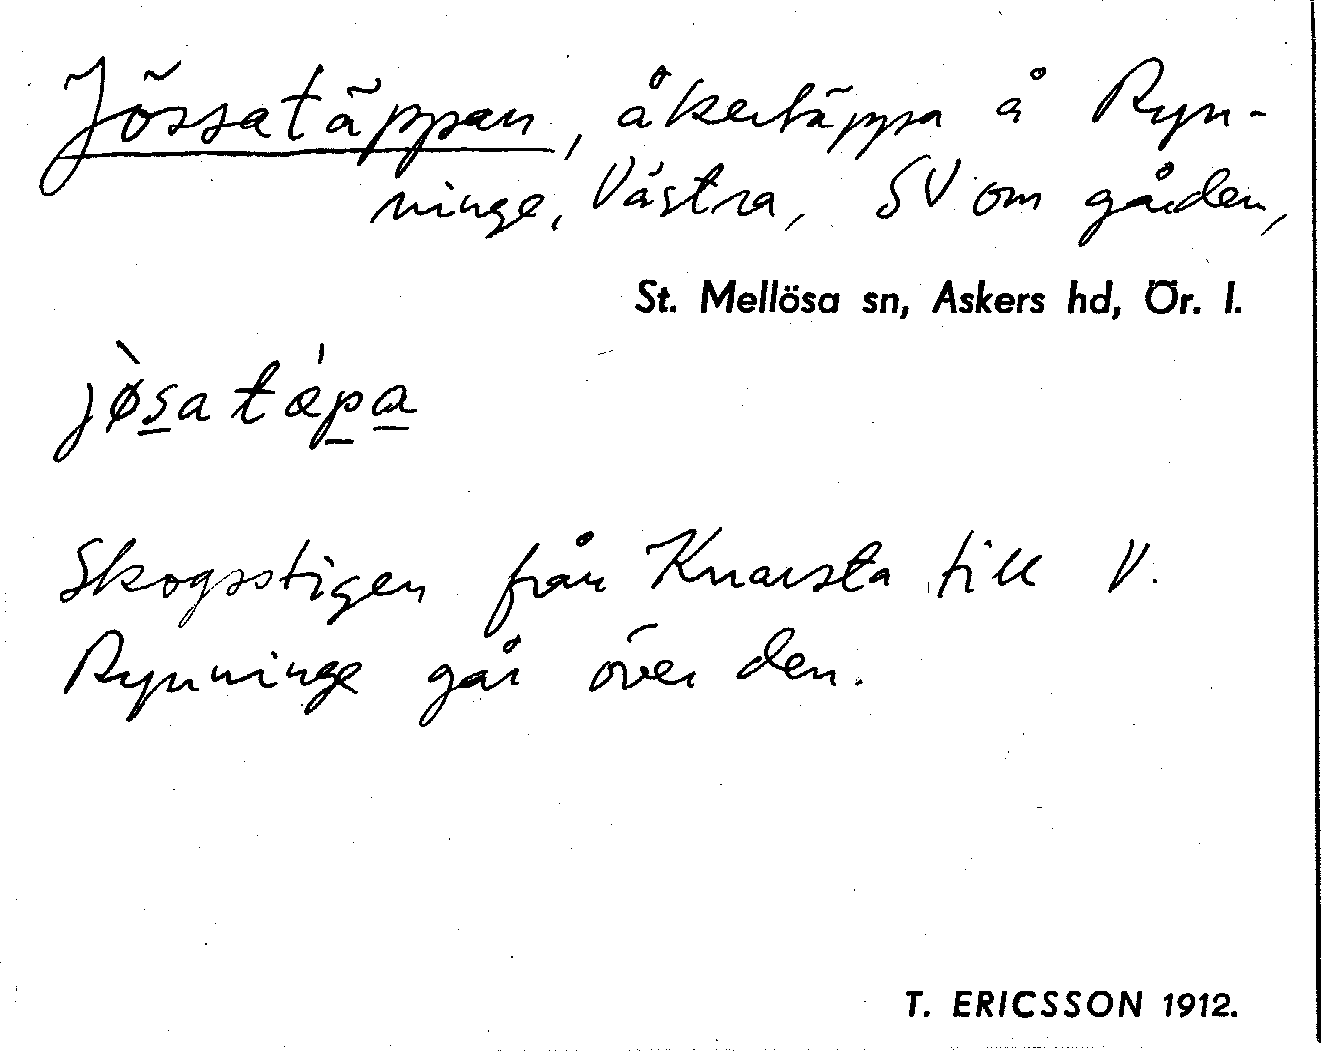 Jössatäppan, åkertäppa å Ryn-
ninge, Västra, SV om gården,
St. Mellösa sn, Askers hd, Ör. l.
jø̀s̲atǽp̲a̲
Skogsstigen från Knarsta till V.
Rynninge går över den.
T. ERICSSON 1912.